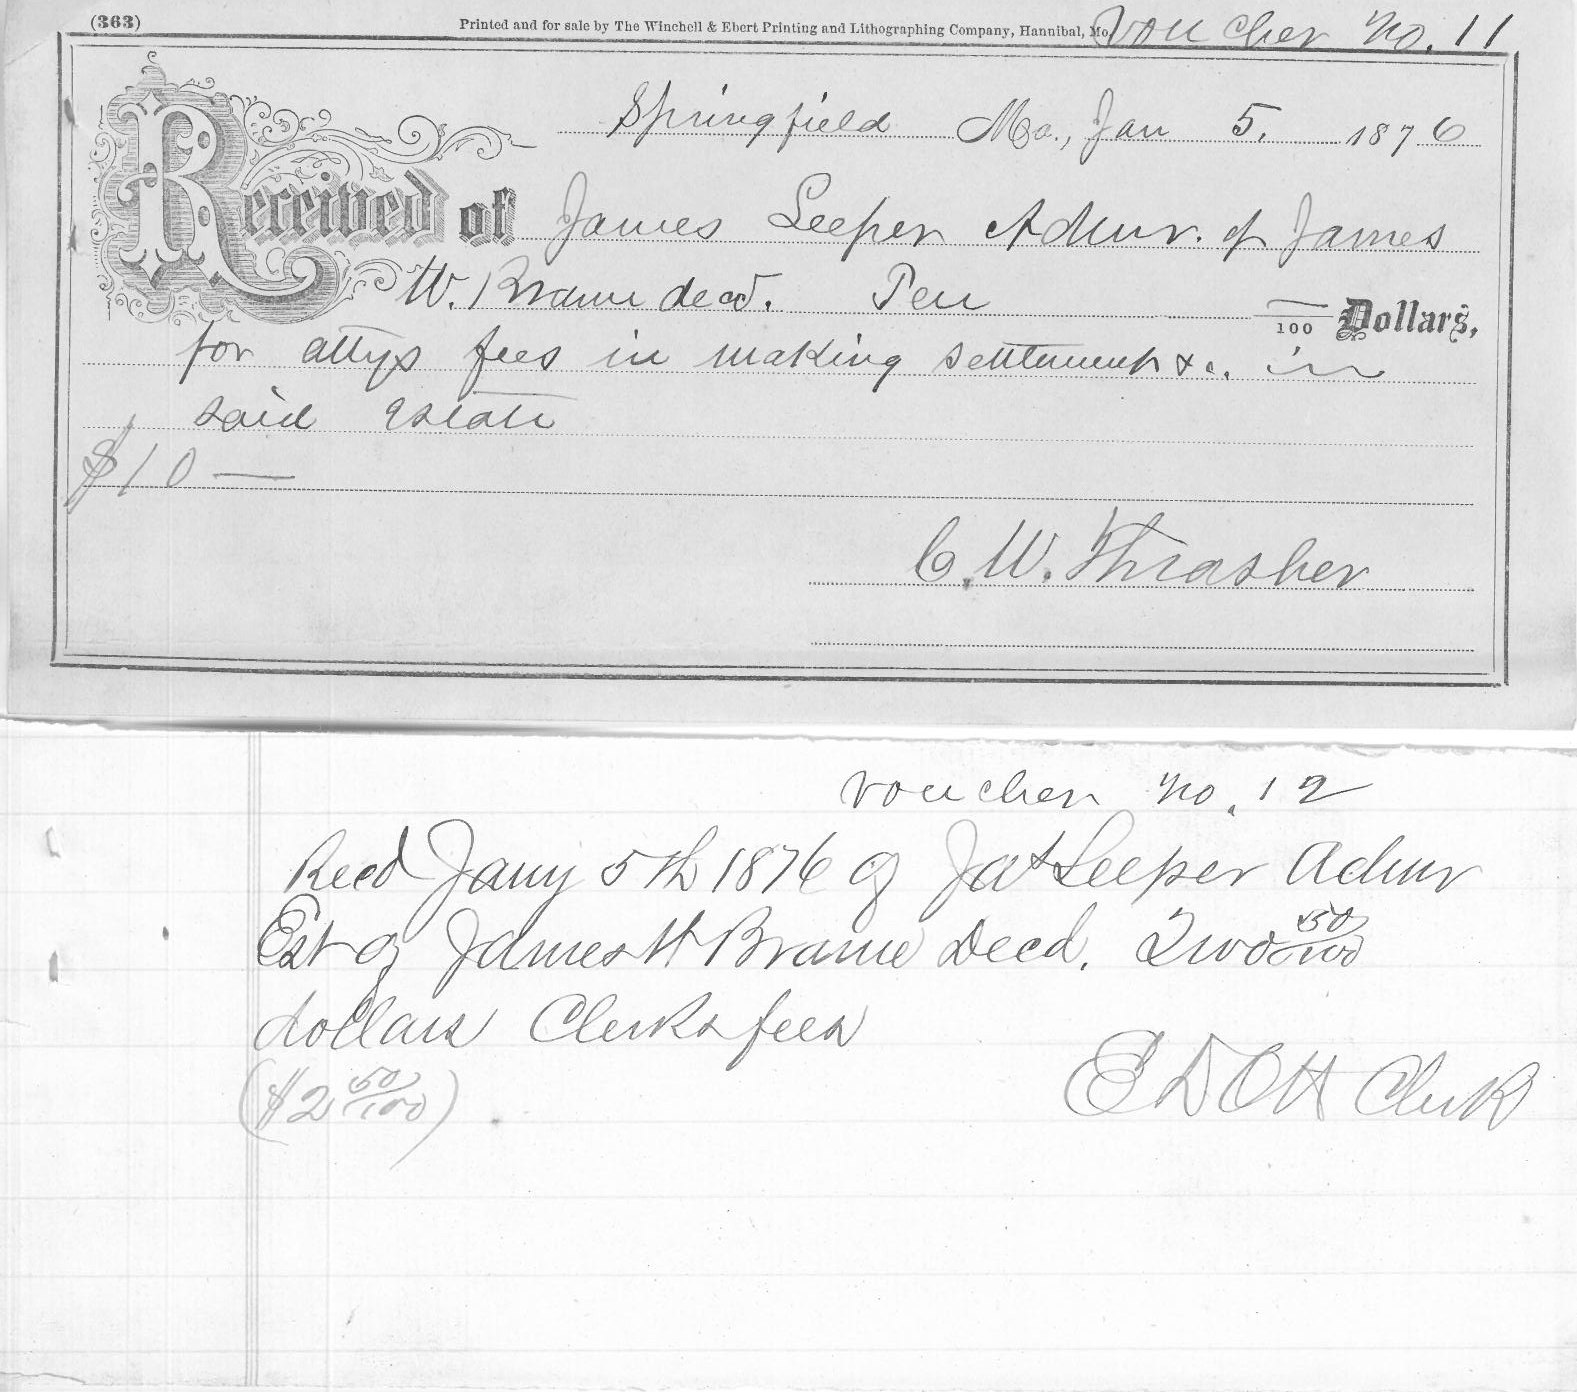 (363) Printed and for sale by The Winchell & Ebert Printing and Lithographing Company, Hannibal, Mo. Voucher No. 11
Springfield Mo., Jan 5. 1876
Received of James Leeper Admr. of James
W. Brame decd. Ten —/100 Dollars,
for attys fees in making settlement &c. in
said Estate
$10 —
C. W. Thrasher
Voucher No. 12
Recd Jany 5th 1876 of Jas Leeper Admr
Est of James H Brame Decd. Two 50/100
dollars Clerks fees
($2 50/100)
E D Ott Clerk